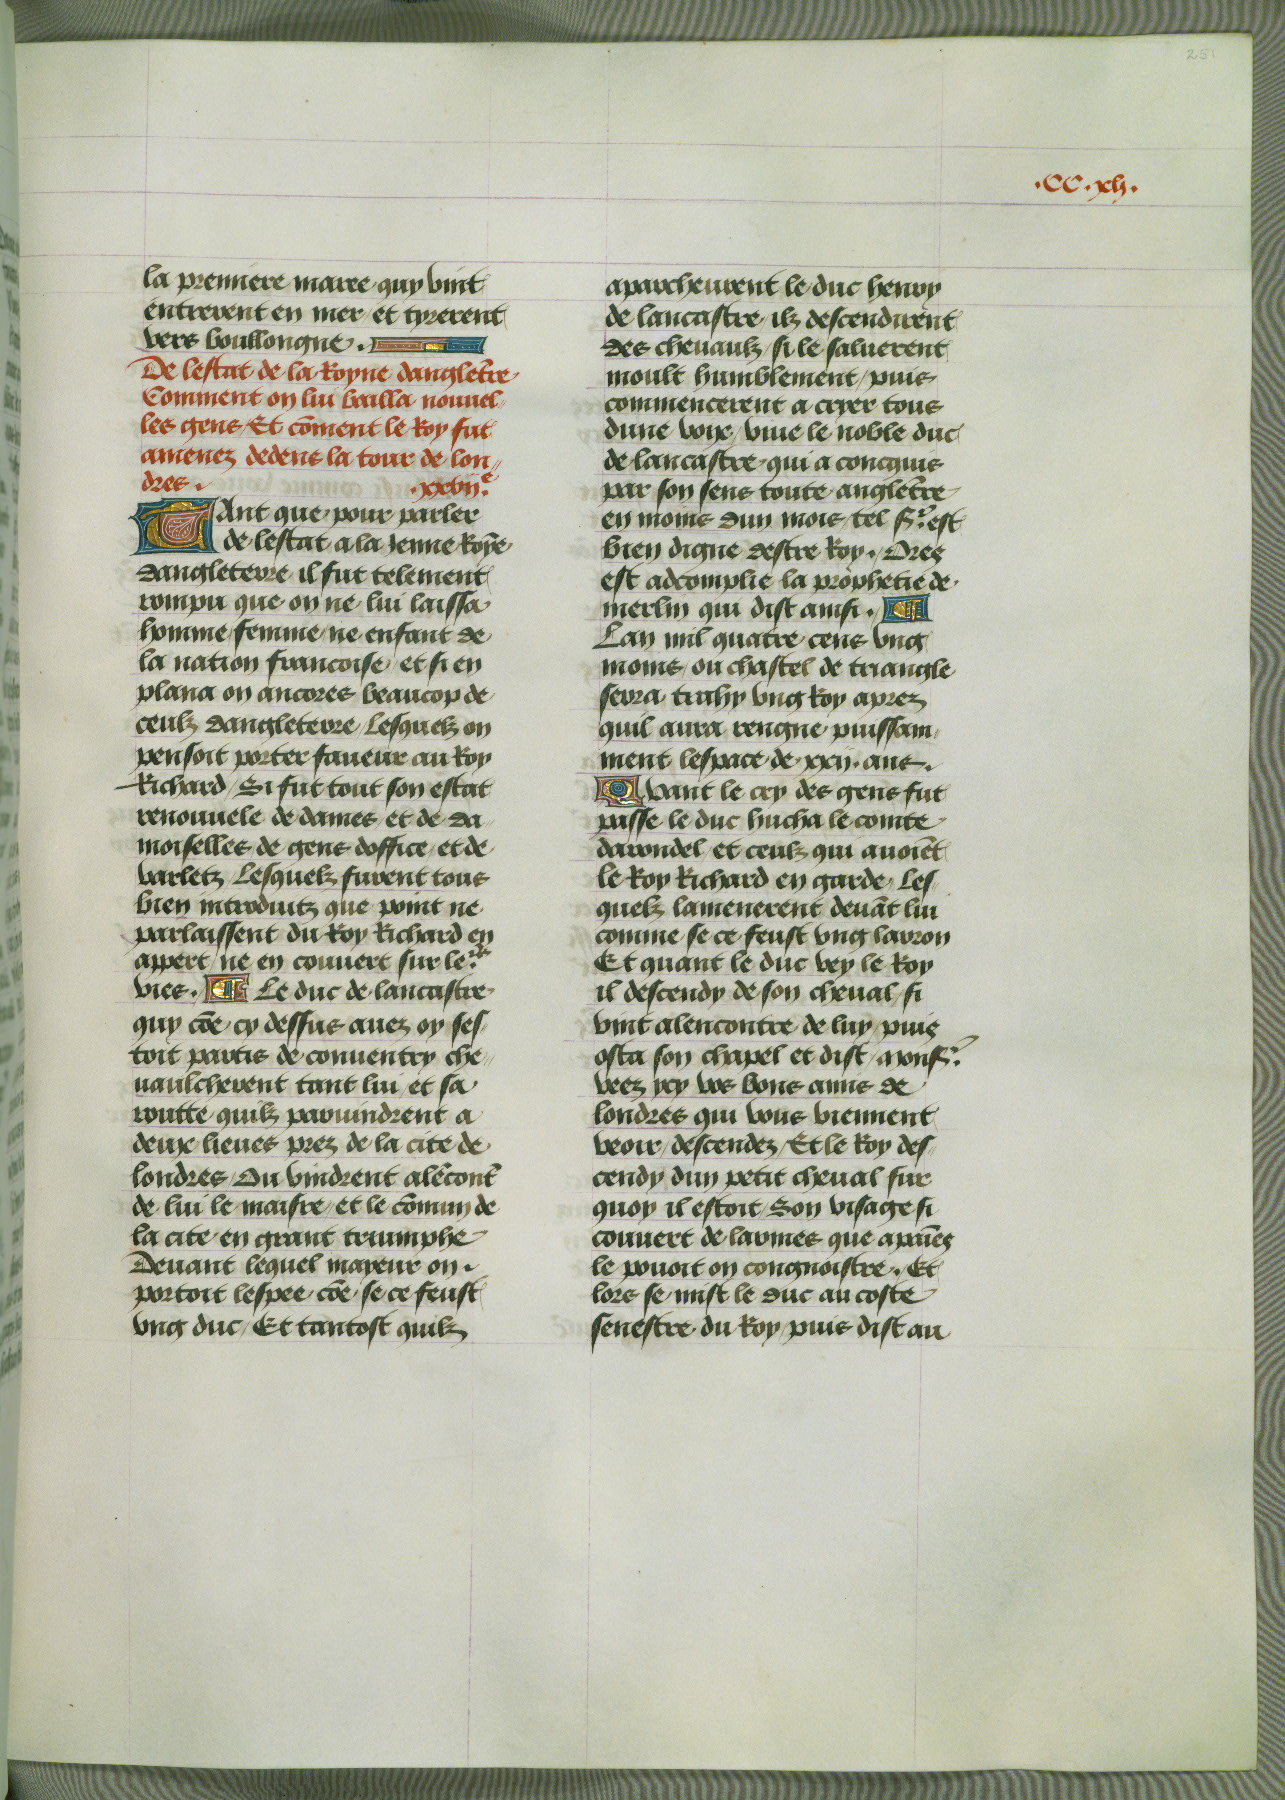 .CC.xli.
la premiere maree quy vint
entrerent en mer et tyrerent
vers boullongne.
De lestat de la Royne dangletere
Comment on lui bailla nouvel-
les gens / Et cōment le Roy fut
amenez dedens la tour de lon-
dres. .xxvii.e
TAnt que pour parler
de lestat a la Jenne Royne
dangleterre il fut telement
rompu que on ne lui laissa
homme / femme / ne enfant de
la nation francoise / et si en
plana on ancores beaucop de
ceulz dangleterre / Lesquelz on
pensoit porter faueur au Roy
Richard / Si fut tout son estat
renouuele de dames et de da-
moiselles de gens doffice et de
varletz / Lesquelz furent tous
bien introduitz que point ne
parlaissent du Roy Richard en
appert ne en couuert sur leur
vies. Le duc de lancastre
quy cōe cy dessus auez oy ses-
toit partis de conuentry che-
uaulcherent tant lui et sa
routte quilz paruindrent a
deux lieues prez de la cite de
londres / Ou vindrent alēcont
de lui le maisre et le cōmun de
la cite en grant triumphe
Deuant lequel mayeur on
portoit lespee cōe se ce feust
vng duc / Et tantost quilz
aparcheurent le duc henry
de lancastre ilz descendirent
des cheuaulz / si le saluerent
moult humblement / puis
commencerent a cryer tous
dune voix / viue le noble duc
de lancastre qui a concquis
par son sens toute angletere
en moins dun mois / tel Sr. est
bien digne destre Roy. Ores
est adcomplie la prophetie de
merlin qui dist ainsi.
Lan mil quatre cens vng
moins / ou chastel de triangle
serra trahy vng Roy aprez
quil aura rengne puissam-
ment lespace de xxii. ans.
Quant le cry des gens fut
passe le duc hucha le comte
darondel / et ceulz qui auoiēt
le Roy Richard en garde / Les-
quelz lamenerent deuāt lui
comme se ce feust vng larron
Et quant le duc vey le Roy
il descendy de son cheual / si
vint alencontre de luy / puis
osta son chapel et dist / monsr.
veez ycy vos bons amis de
londres qui vous viennent
veoir / descendez / Et le Roy des-
cendy dun petit cheual sur
quoy il estoit / Son visage si
couuert de larmes que a paines
le pouoit on congnoistre. Et
lors se mist le duc au coste
senestre du Roy / puis dist au